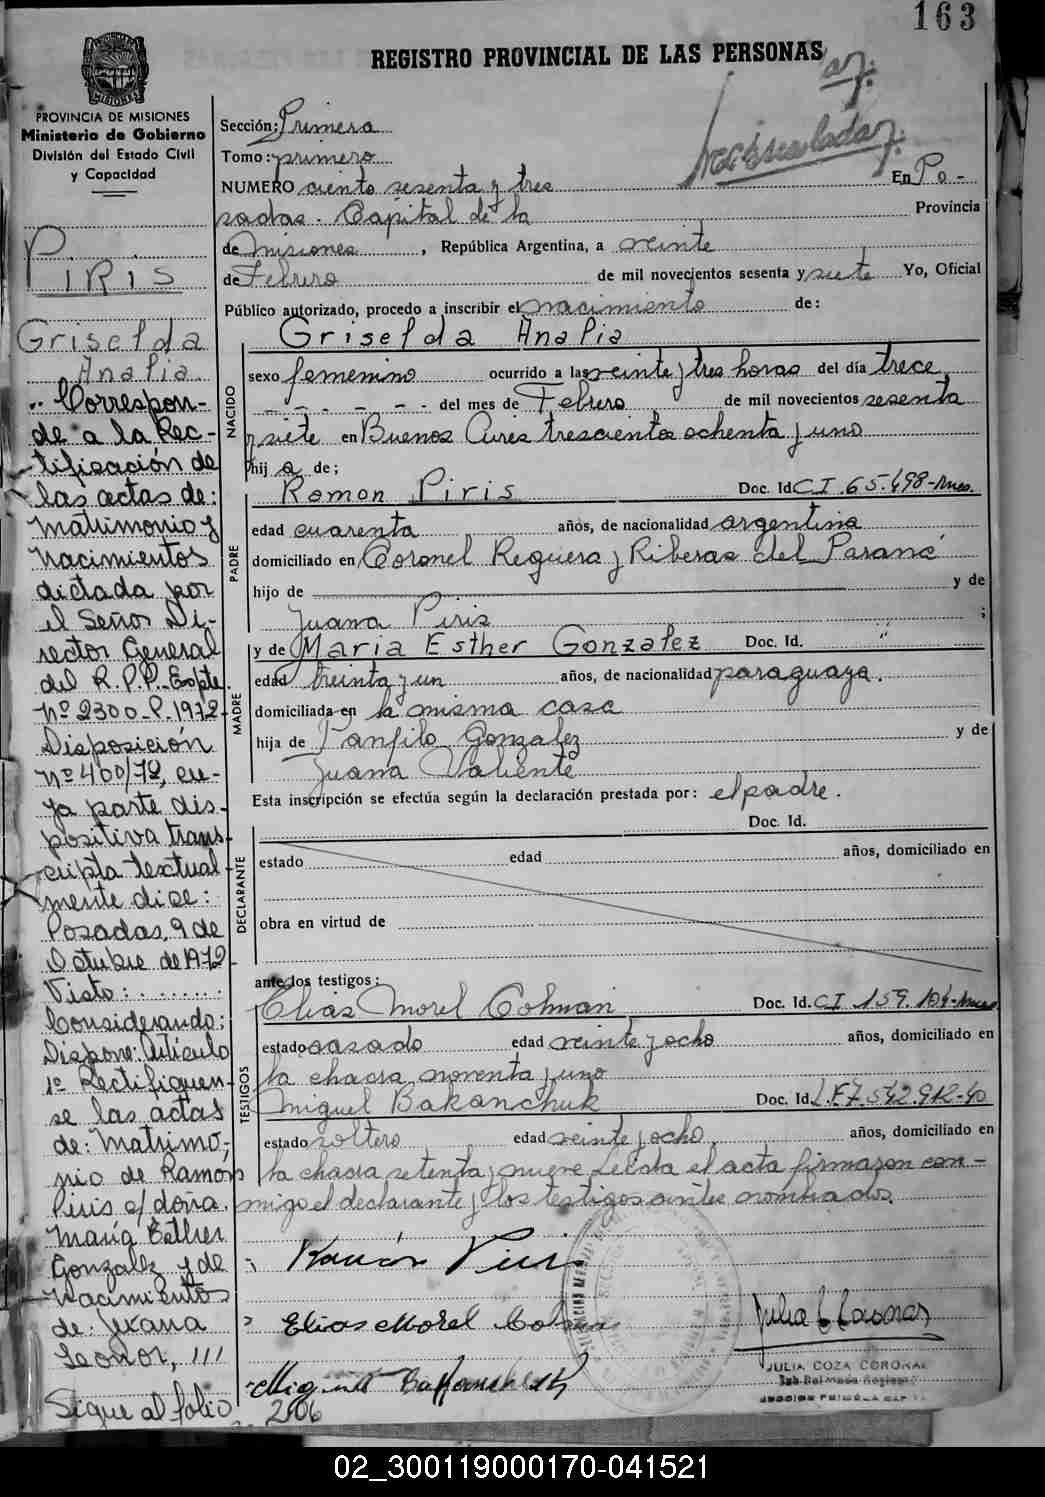 163
REGISTRO PROVINCIAL DE LAS PERSONAS
PROVINCIA DE MISIONES
Ministerio de Gobierno
División del Estado Civil
y Capacidad
PIRIS
Griselda
Analia
Correspon-
de a la Rec-
tificación de
las actas de:
matrimonio y
nacimientos
dictada por
el Señor Di-
rector General
del R.P.P. Expte.
Nº 2300-P. 1972
Disposición
nº 400/72, cu-
ya parte dis-
positiva trans-
cripta textual-
mente dice:
Posadas, 9 de
Octubre de 1972
Visto: ........
Considerando:
Dispone: Artículo
1º Rectifiquen-
se las actas
de: Matrimo-
nio de Ramón
Piris c/ doña
María Esther
Gonzalez y de
nacimientos
de: 
Leonor, ///
Sigue al folio 206
Sección: Primera
Tomo: primero
NUMERO ciento sesenta y tres En Po-
sadas. Capital de la Provincia
de Misiones, República Argentina, a veinte
de Febrero de mil novecientos sesenta y siete Yo, Oficial
Público autorizado, procedo a inscribir el nacimiento de:
Griselda Analia
NACIDO
sexo femenino ocurrido a las veinte y tres horas del día trece
del mes de Febrero de mil novecientos sesenta
y siete en Buenos Aires trescientos ochenta y uno
hija de;
Ramon Piris Doc. Id C.I. 65.498-Mnes.
PADRE
edad cuarenta años, de nacionalidad argentina
domiciliado en Coronel Reguera y Riberas del Paraná
hijo de y de
Juana Piris ;
y de Maria Esther Gonzalez Doc. Id. "
MADRE
edad treinta y un años, de nacionalidad paraguaya.
domiciliada en la misma casa
hija de Panfilo Gonzalez y de
Juana Valiente
Esta inscripción se efectúa según la declaración prestada por: el padre.
Doc. Id.
DECLARANTE
estado edad años, domiciliado en
obra en virtud de
ante los testigos:
Elias Morel Colman Doc. Id. C.I. 159.104-Mnes
TESTIGOS
estado casado edad veinte y ocho años, domiciliado en
la chacra noventa y uno
Miguel Bakanchuk Doc. Id. L.E. 7.542.912-
estado soltero edad veinte y ocho, años, domiciliado en
la chacra setenta y nueve. Leida el acta firmaron con-
migo el declarante y los testigos antes nombrados.
Ramón Piris
Elias Morel Colman
JULIA COZA CORONAL
02_300119000170-041521